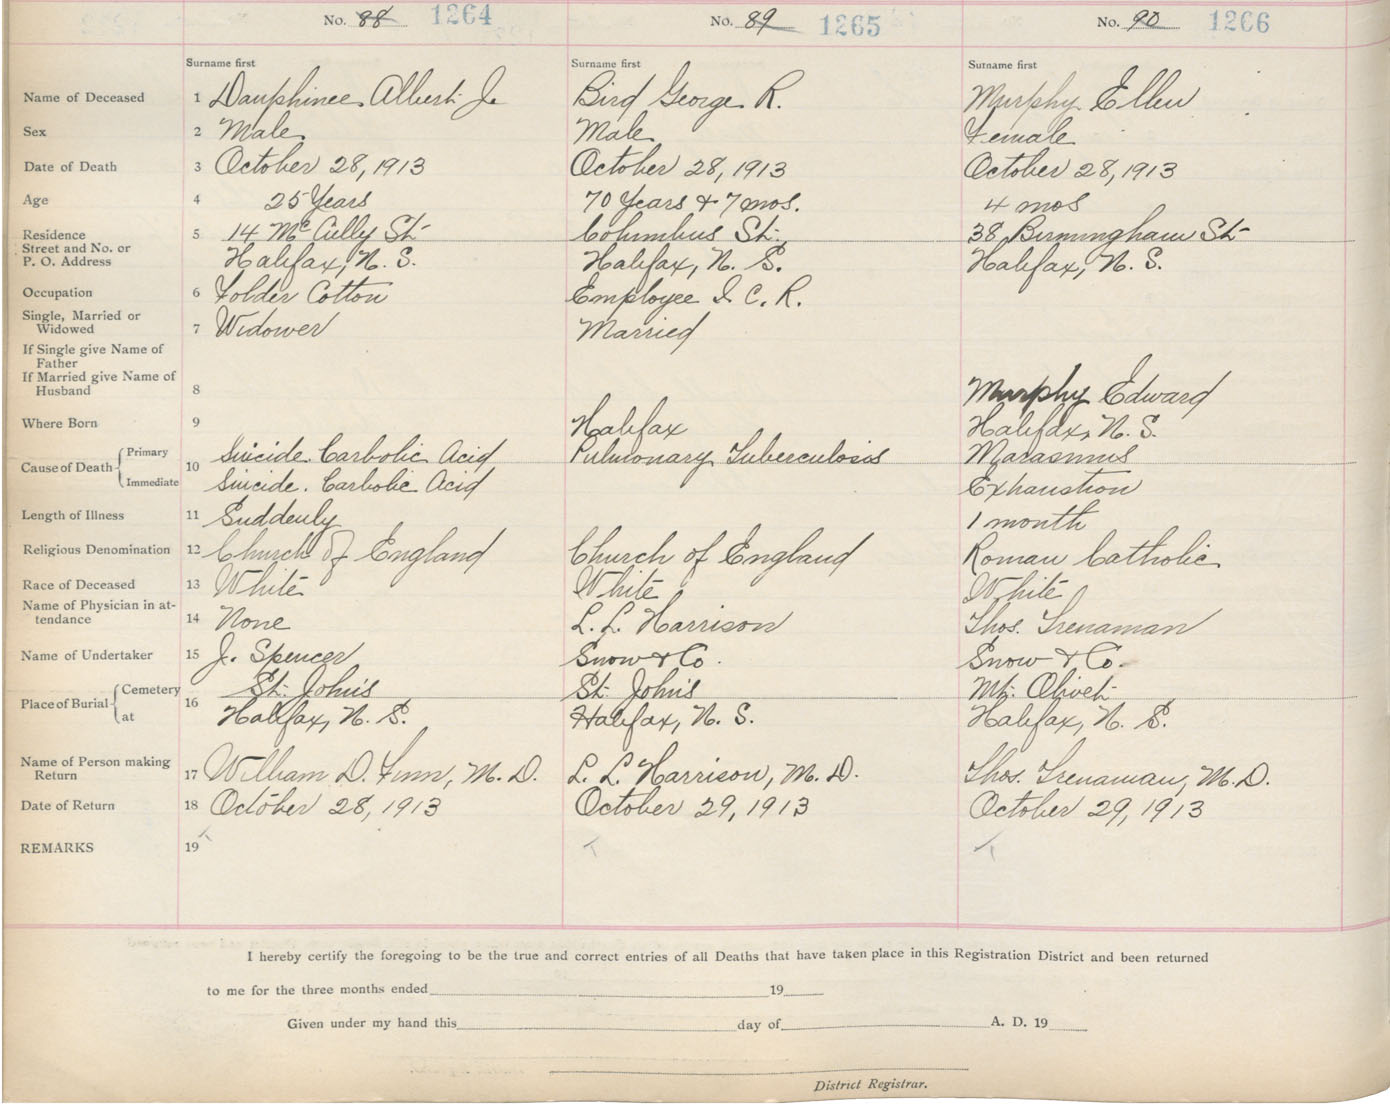 No. 88 1264 No. 89 1265 No. 90 1266
Surname first Surname first Surname first
Name of Deceased 1 Dauphinee Albert J. Bird George R. Murphy Ellen
Sex 2 Male Male Female
Date of Death 3 October 28, 1913 October 28, 1913 October 28, 1913
Age 4 25 Years 70 Years & 7 mos. 4 mos
Residence 5 14 McCully St. Columbus St. 38 Birmingham St.
Street and No. or
P. O. Address Halifax, N. S. Halifax, N. S. Halifax, N. S.
Occupation 6 Folder Cotton Employee I. C. R.
Single, Married or
Widowed 7 Widower Married
If Single give Name of
Father
If Married give Name of
Husband 8 Murphy Edward
Where Born 9 Halifax Halifax, N. S.
Cause of Death Primary 10 Suicide. Carbolic Acid Pulmonary Tuberculosis Marasmus
Immediate Suicide. Carbolic Acid Exhaustion
Length of Illness 11 Suddenly 1 month
Religious Denomination 12 Church of England Church of England Roman Catholic
Race of Deceased 13 White White White
Name of Physician in at-
tendance 14 None L. L. Harrison Thos. Trenaman
Name of Undertaker 15 J. Spencer Snow & Co. Snow & Co.
Place of Burial Cemetery 16 St. John's St. John's Mt. Olivet
at Halifax, N. S. Halifax, N. S. Halifax, N. S.
Name of Person making
Return 17 William D. Finn, M. D. L. L. Harrison, M. D. Thos. Trenaman, M. D.
Date of Return 18 October 28, 1913 October 29, 1913 October 29, 1913
REMARKS 19
I hereby certify the foregoing to be the true and correct entries of all Deaths that have taken place in this Registration District and been returned
to me for the three months ended 19
Given under my hand this day of A. D. 19
District Registrar.